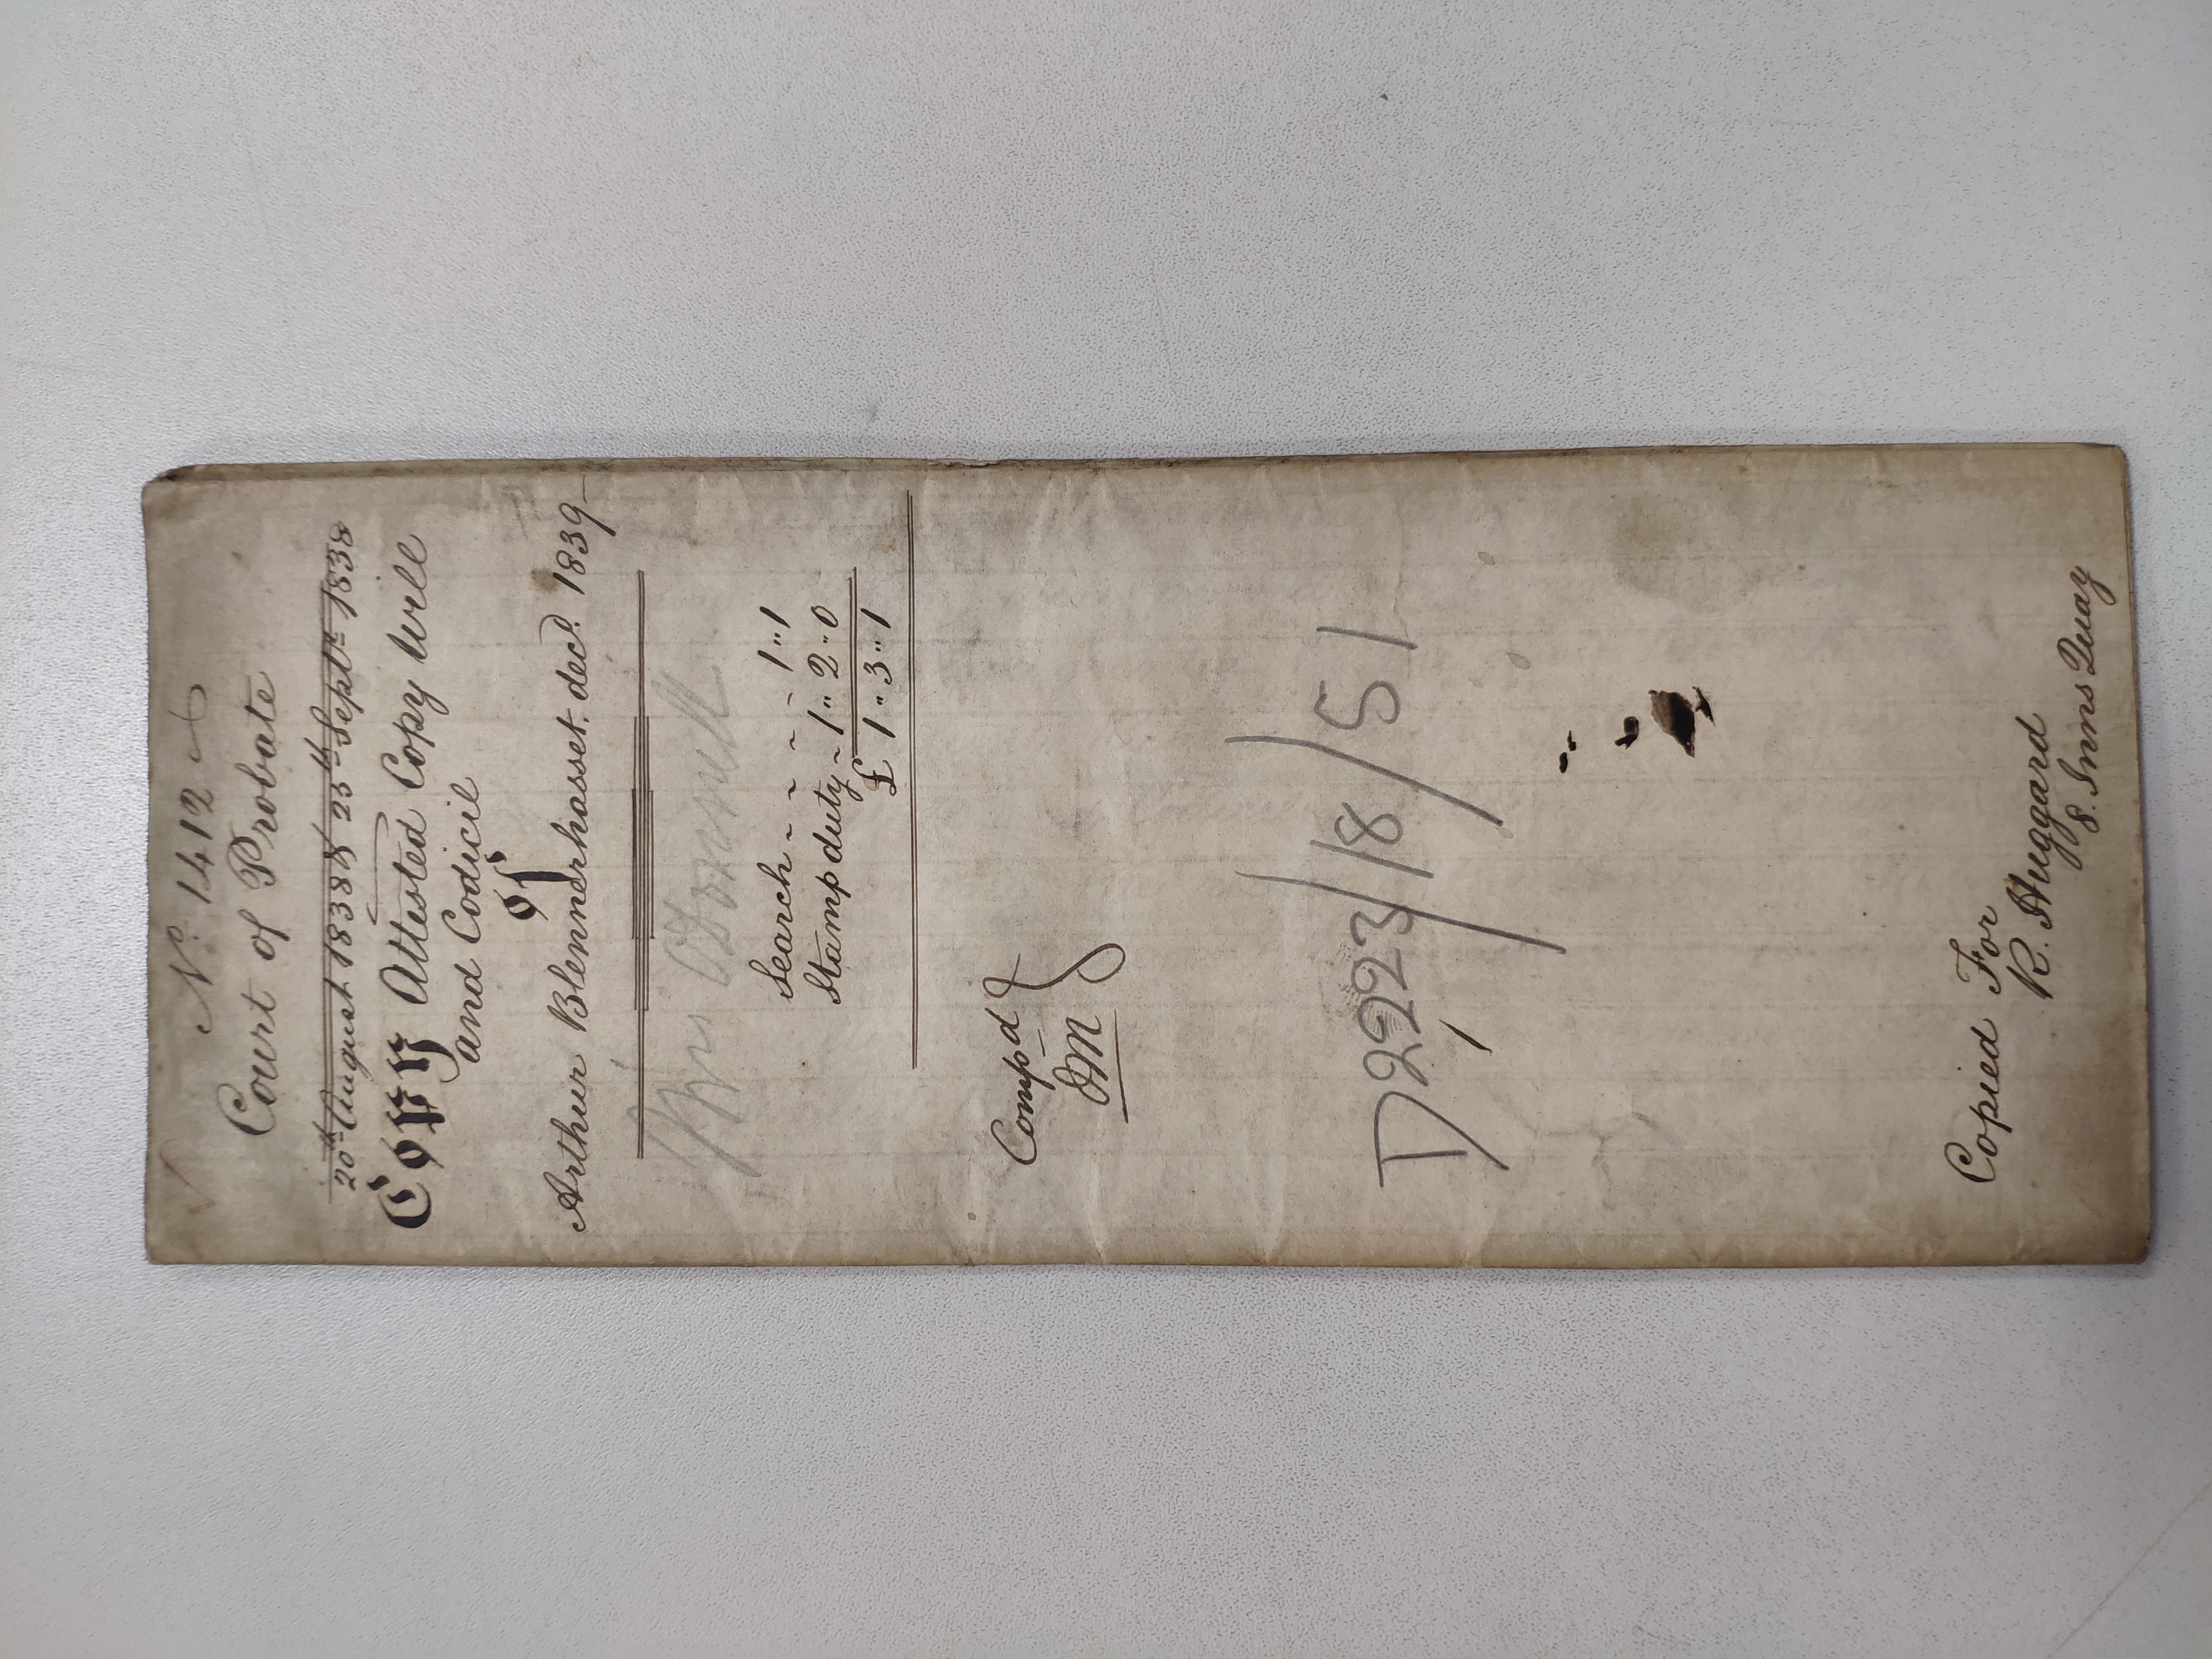 No. 1412
Court of Probate
20th August 1838 & 25th Septr. 1838
Copy Attested Copy Will
and Codicil
of
Arthur Blennerhasset. decd. 1839
Search - - - - 1"1
Stamp duty - 1"2"0
£1"3"1
Compd
D2223/8/51
Copied For
R. Huggard
8. Inns Quay